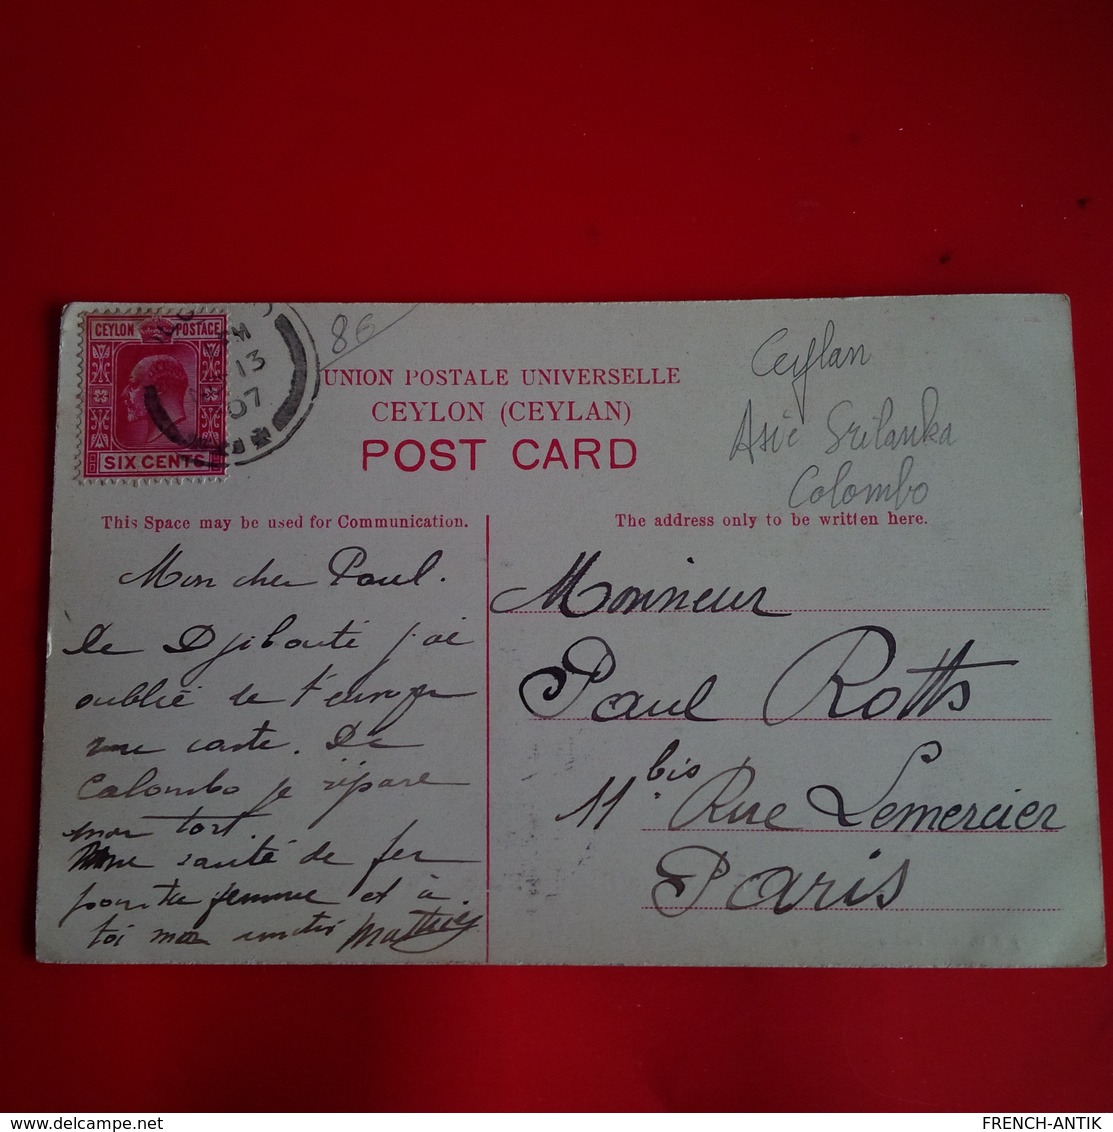 CEYLON POSTAGE
SIX CENTS
13
07
86
UNION POSTALE UNIVERSELLE
CEYLON (CEYLAN)
POST CARD
Ceylan
Asie Srilanka
Colombo
This Space may be used for Communication.
The address only to be written here.
Mon cher Paul.
De Djibouti j'ai
oublié de t'envoyer
une carte. De
Colombo je répare
mon tort
une santé de fer
pour ta femme et à
toi mon Mathieu
Monsieur
Paul Rotts
11 bis Rue Lemercier
Paris
FRENCH-ANTIK
delcampe.net